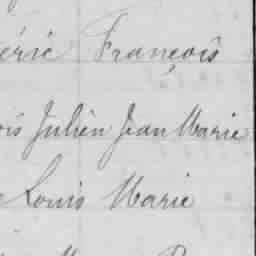 éric François
ois Julien Jean Marie
Louis Marie